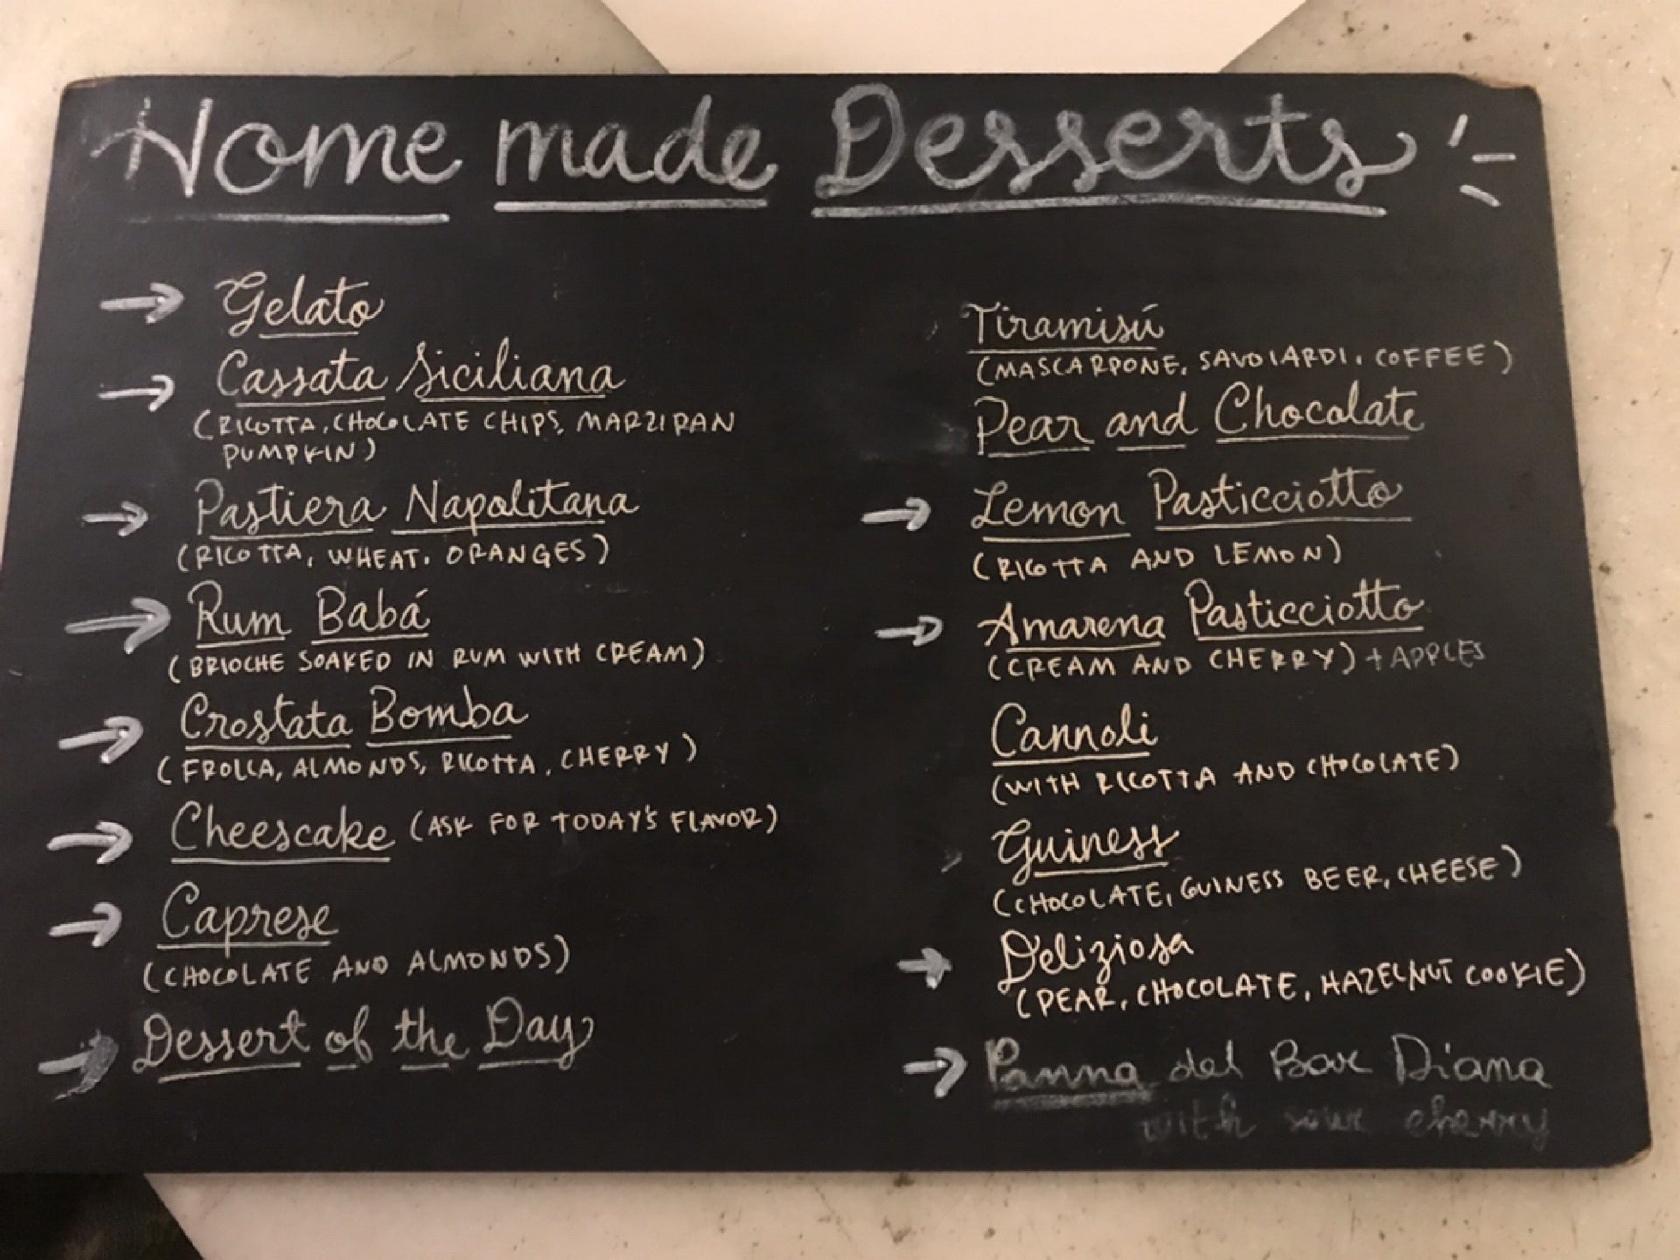 Home made Desserts
Gelato
Cassata Siciliana
(RICOTTA, CHOCOLATE CHIPS, MARZIPAN
PUMPKIN)
Pastiera Napolitana
(RICOTTA, WHEAT, ORANGES)
Rum Babá
(BRIOCHE SOAKED IN RUM WITH CREAM)
Crostata Bomba
(FROLLA, ALMONDS, RICOTTA, CHERRY)
Cheescake (ASK FOR TODAY'S FLAVOR)
Caprese
(CHOCOLATE AND ALMONDS)
Dessert of the Day
Tiramisú
(MASCARPONE, SAVOIARDI, COFFEE)
Pear and Chocolate
Lemon Pasticciotto
(RICOTTA AND LEMON)
Amarena Pasticciotto
(CREAM AND CHERRY) + APPLES
Cannoli
(WITH RICOTTA AND CHOCOLATE)
Guiness
(CHOCOLATE, GUINESS BEER, CHEESE)
Deliziosa
(PEAR, CHOCOLATE, HAZELNUT COOKIE)
Panna del Bar Diana
with sour cherry